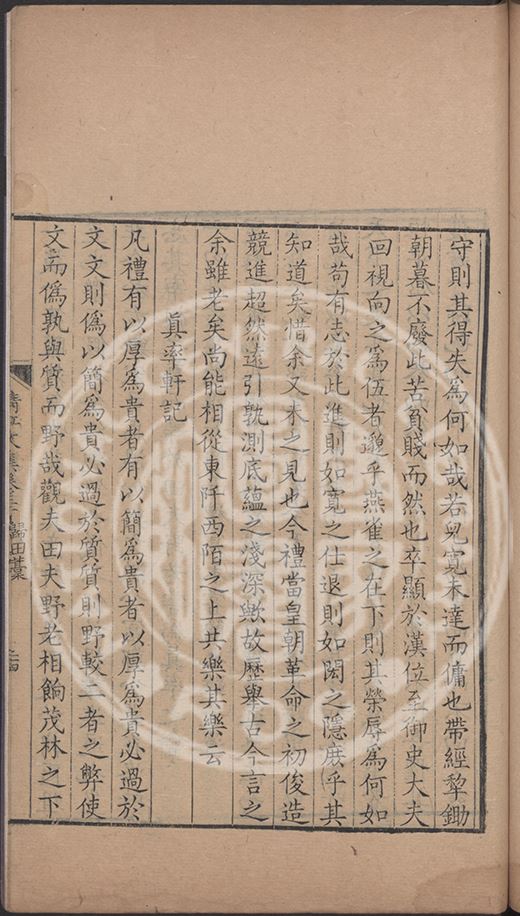 守則其得失為何如哉若兒寬未達而傭也帶經犂鋤
朝暮不廢此苦貧賤而然也卒顯於漢位至御史大夫
回視向之為伍者邈乎燕雀之在下則其榮辱為何如
哉苟有志於此進則如寬之仕退則如閎之隱庶乎其
知道矣惜余又未之見也今禮當皇朝革命之初俊造
競進超然遠引孰測底蘊之淺深歟故歷舉古今言之
余雖老矣尚能相從東阡西陌之上共樂其樂云
真率軒記
凡禮有以厚為貴者有以簡為貴者以厚為貴必過於
文文則偽以簡為貴必過於質質則野較二者之弊使
文而偽孰與質而野哉觀夫田夫野老相餉茂林之下
清江文集卷三十 歸田藁 之四